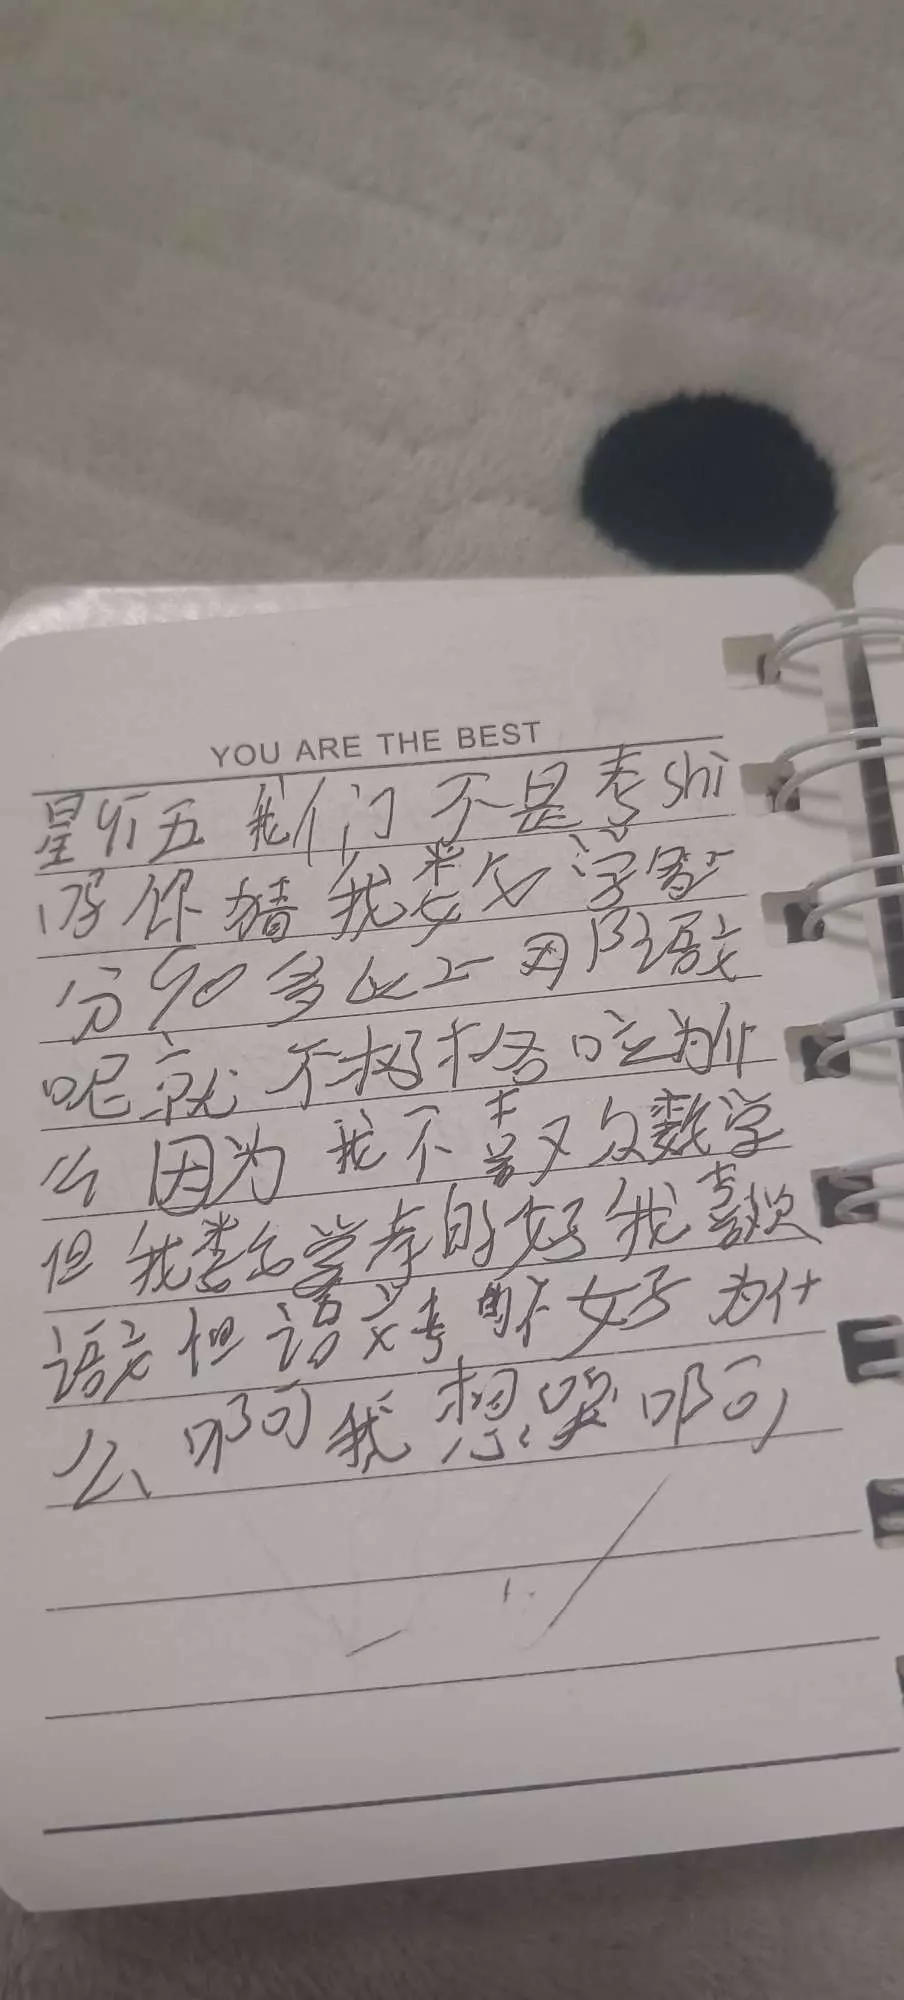 YOU ARE THE BEST
星期五我们不是考shi
吗你猜我数学考
分90多以上因那语文
呢就不好
么因为我不喜欢数学
但我数学考的好我喜欢
语文但语文考的不好为什
么啊我想哭啊